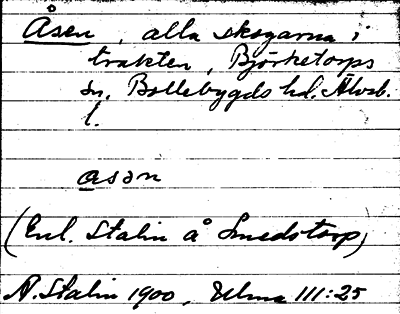 Åsen, alla skogarna i
trakten, Björketorps
sn, Bollebygds hd. Älvsb.
l.
asən
(Enl. Stalin å Smedstorp)
A. Stalin 1900, Ulma 111:25